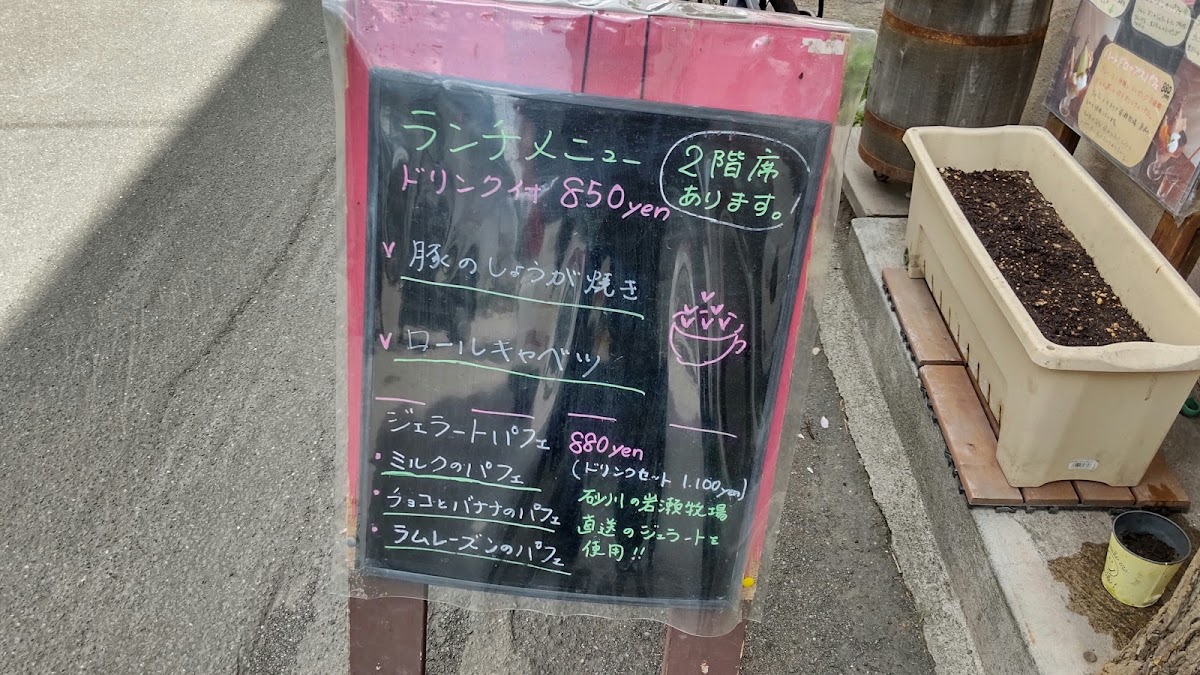 ランチメニュー
ドリンク付 850yen
2階席
あります。
豚のしょうが焼き
ロールキャベツ
ジェラートパフェ 880yen
(ドリンクセット 1.100yen)
・ミルクのパフェ
・チョコとバナナのパフェ
・ラムレーズンのパフェ
砂川の岩瀬牧場
直送のジェラートを
使用!!